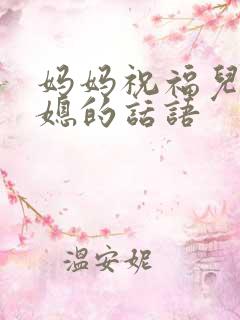 妈妈祝福兒
媳的話語
溫安妮